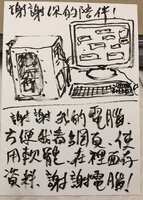 謝謝你的陪伴!
謝謝我的電腦,
方便我看網頁、使
用軟體,在裡面存
資料,謝謝電腦!